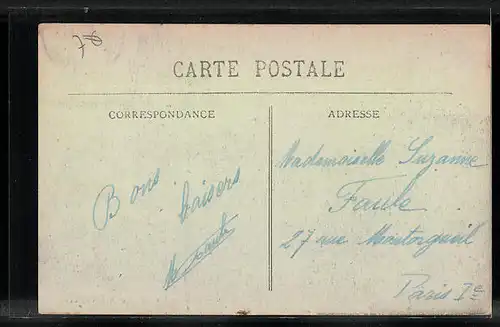 76
CARTE POSTALE
CORRESPONDANCE
Bons baisers
ADRESSE
Mademoiselle Suzanne
Faule
27 rue Montorgueil
Paris Ie